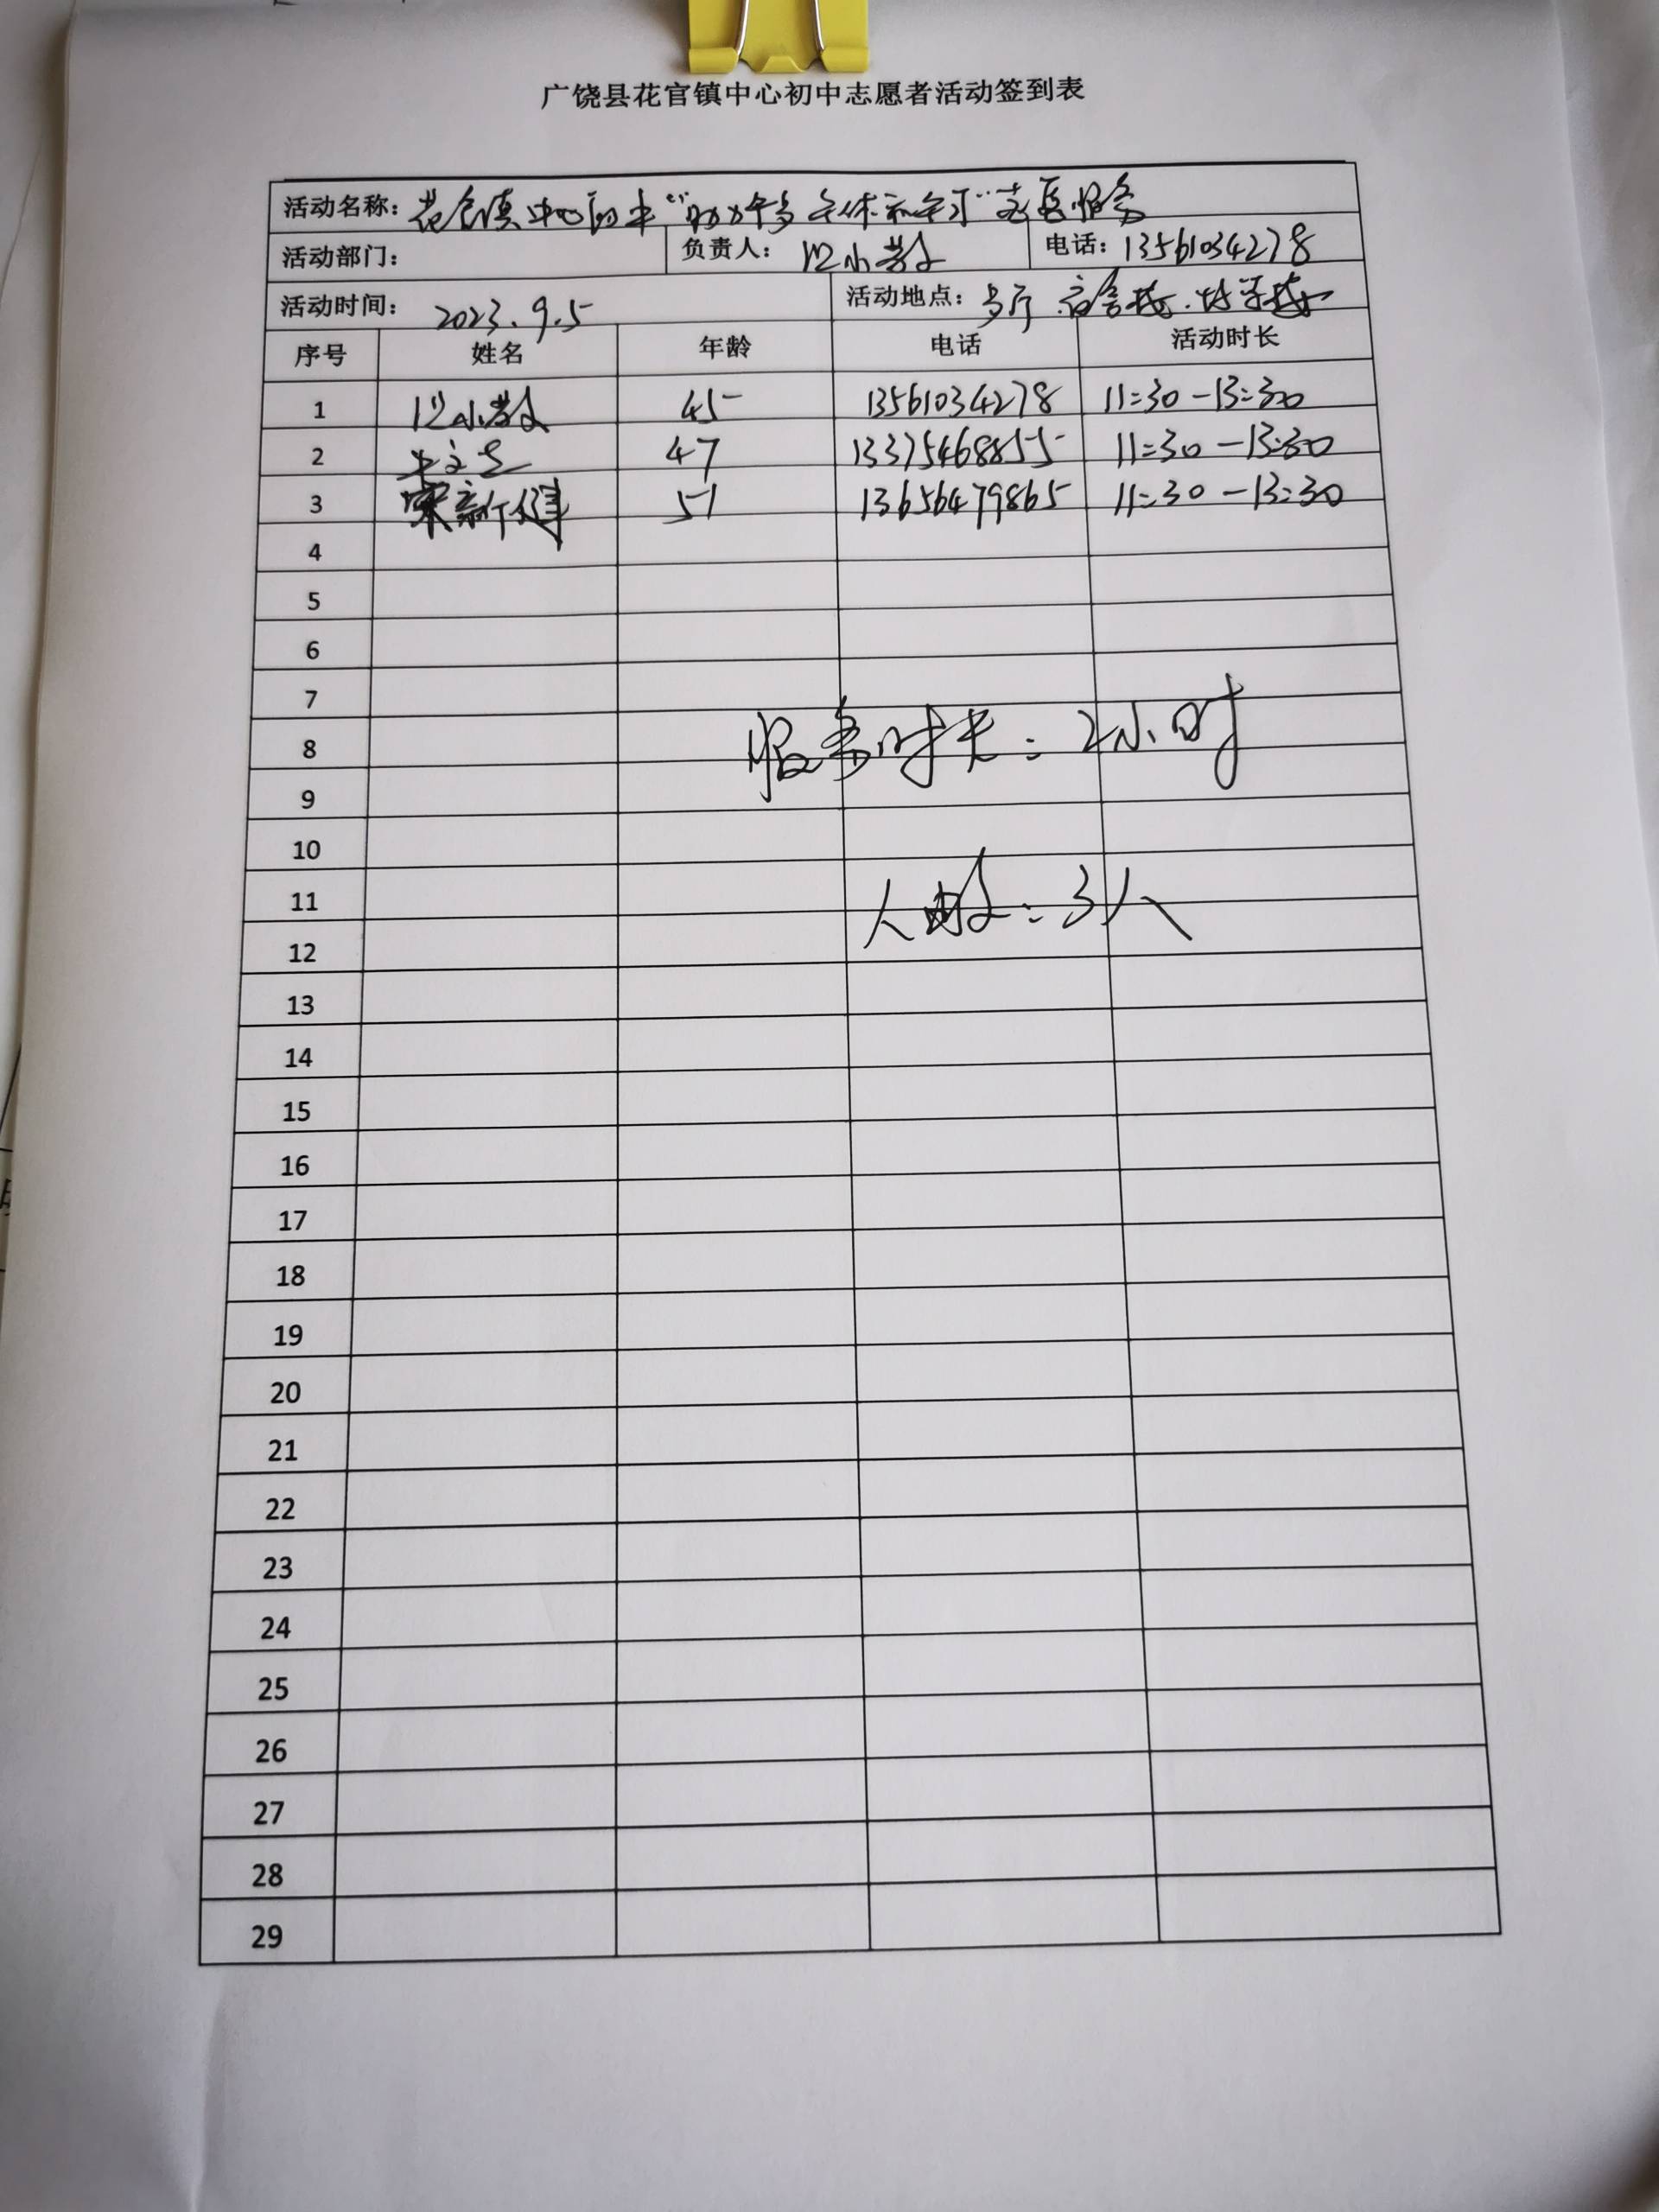 广饶县花官镇中心初中志愿者活动签到表
活动名称：花官镇中心初中“助力午多午休和午习”志愿服务
活动部门： 负责人： 小 电话：13561034278
活动时间：2023.9.5 活动地点： 宿舍楼.教学楼
序号 姓名 年龄 电话 活动时长
1 小 45 13561034278 11:30-13:30
2 47 13375468855 11:30-13:30
3 宋新健 51 13656479865 11:30-13:30
4
5
6
7
8
服务时长：2小时
9
10
11
人数：3人
12
13
14
15
16
17
18
19
20
21
22
23
24
25
26
27
28
29